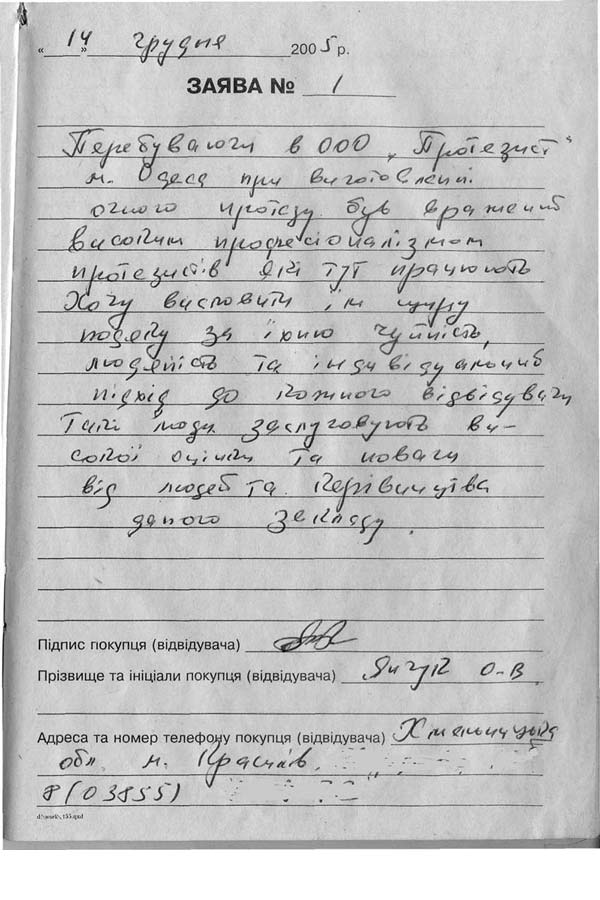 « 14 » грудня 2005 р.
ЗАЯВА № 1
Перебуваючи в ООО „Протезист"
м. Одеса при виготовленні
очного протезу був вражений
високим професіоналізмом
протезистів які тут працюють
Хочу висловити їм щиру
подяку за їхню чуйність,
людяність та індивідуальний
підхід до кожного відвідувачу
Такі люди заслуговують ви-
сокої оцінки та поваги
від людей та керівництва
даного закладу.
Підпис покупця (відвідувача)
Прізвище та ініціали покупця (відвідувача) Янчук О.В.
Адреса та номер телефону покупця (відвідувача) Хмельницька
обл. м. Красилів
8(03855)